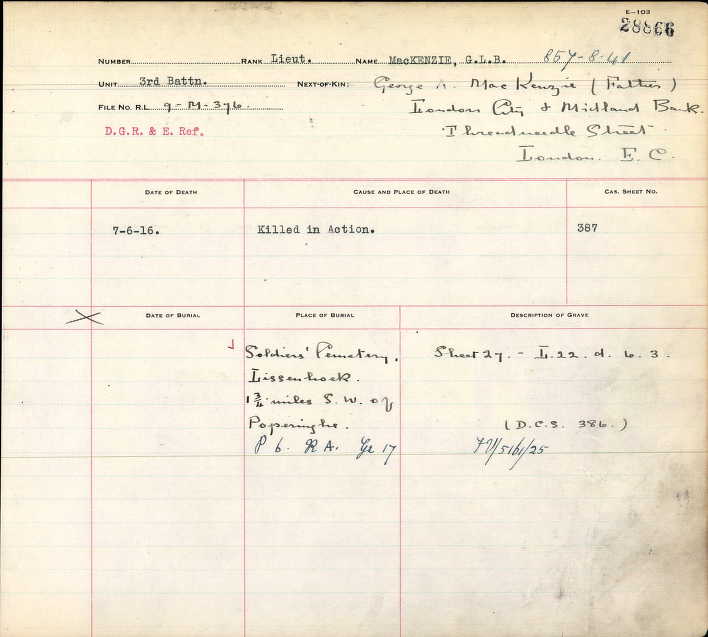 E-103
28866
NUMBER RANK Lieut. NAME MacKENZIE, G.L.B. 857-8-41
UNIT 3rd Battn. NEXT-OF-KIN: George A. MacKenzie (Father)
FILE NO. R.L. 9-M-376. London City & Midland Bank.
D.G.R. & E. Ref. Threadneedle Street
London. E.C.
DATE OF DEATH CAUSE AND PLACE OF DEATH CAS. SHEET NO.
7-6-16. Killed in Action. 387
DATE OF BURIAL PLACE OF BURIAL DESCRIPTION OF GRAVE
Soldiers' Cemetery, Sheet 27. - L.22. d. 6. 3.
Lissenhoek.
1 3/4 miles S.W. of
Poperinghe. (D.C.S. 386.)
P 6. R A. Gr 17